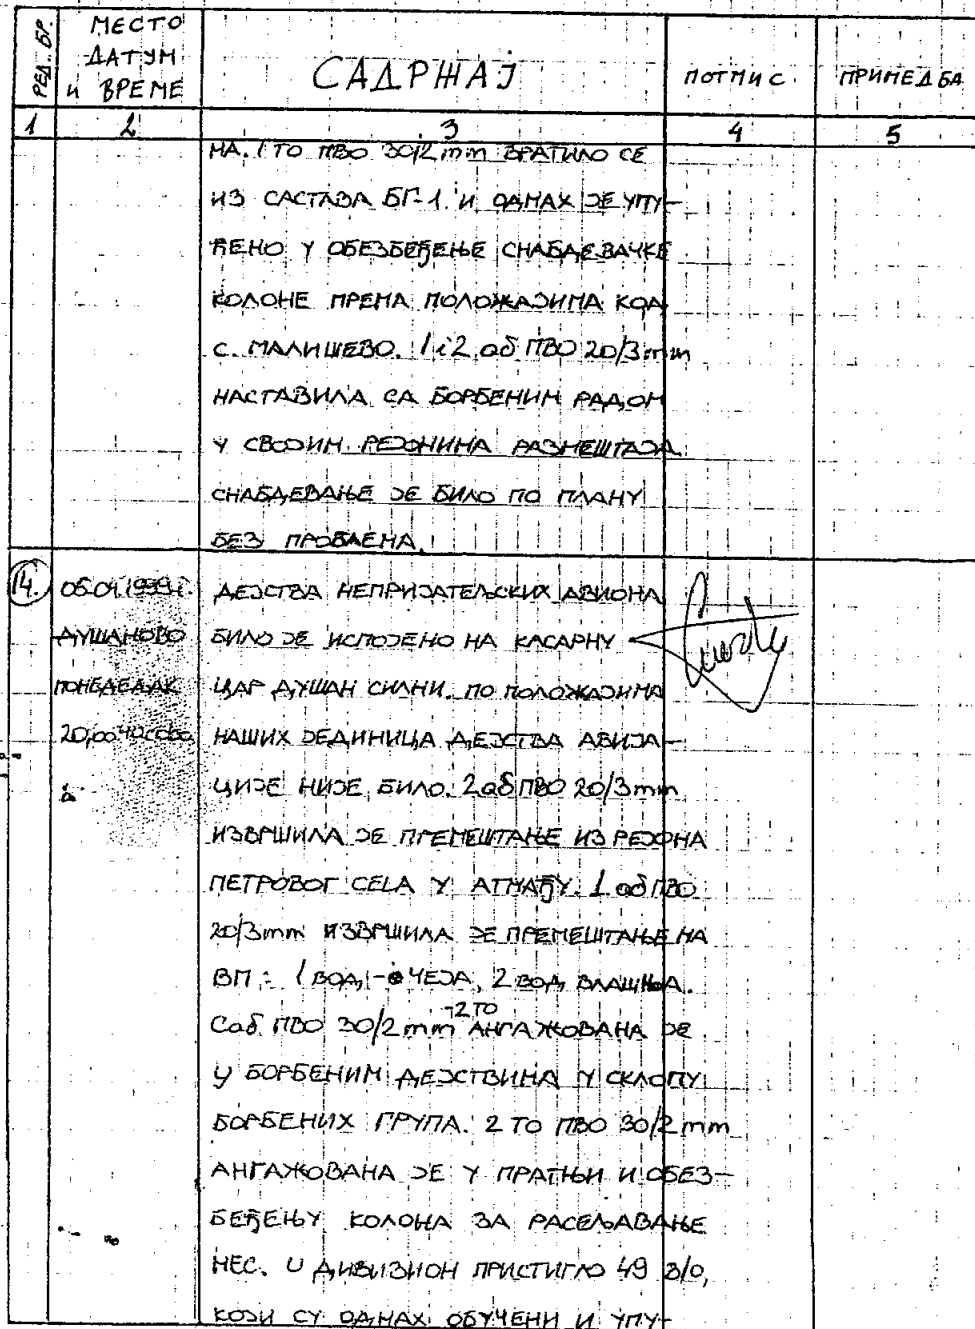 РЕД. БР.
МЕСТО
ДАТУМ
И ВРЕМЕ
САДРЖАЈ
ПОТПИС
ПРИМЕДБА
1 2 3 4 5
НА. 1 ТО ПВО 30/2 mm ВРАТИЛО СЕ
ИЗ САСТАВА БГ-1 И ОДМАХ ЈЕ УПУ-
ЋЕНО У ОБЕЗБЕЂЕЊЕ СНАБДЕВАЧКЕ
КОЛОНЕ ПРЕМА ПОЛОЖАЈИМА КОД
С. МАЛИШЕВО. 1 i 2 аб ПВО 20/3 mm
НАСТАВИЛА СА БОРБЕНИМ РАДОМ
У СВОЈИМ РЕЈОНИМА РАЗМЕШТАЈА.
СНАБДЕВАЊЕ ЈЕ БИЛО ПО ПЛАНУ
БЕЗ ПРОБЛЕМА.
14. 05.04.1999 г. ДЕЈСТВА НЕПРИЈАТЕЉСКИХ АВИОНА
ДУШАНОВО БИЛО ЈЕ ИСПОЈЕНО НА КАСАРНУ
ПОНЕДЕЉАК ЦАР ДУШАН СИЛНИ. ПО ПОЛОЖАЈИМА
20,00 часова НАШИХ ЈЕДИНИЦА ДЕЈСТВА АВИЈА-
ЦИЈЕ НИЈЕ БИЛО. 2 аб ПВО 20/3 mm
ИЗВРШИЛА ЈЕ ПРЕМЕШТАЊЕ ИЗ РЕЈОНА
ПЕТРОВОГ СЕЛА У АТМАЂУ. 1 аб ПВО
20/3 mm ИЗВРШИЛА ЈЕ ПРЕМЕШТАЊЕ НА
ВП: 1 ВОД - ЧЕЈА, 2 ВОД ВЛАШЊА.
Саб ПВО 30/2 mm -2 ТО АНГАЖОВАНА ЈЕ
У БОРБЕНИМ ДЕЈСТВИМА У СКЛОПУ
БОРБЕНИХ ГРУПА. 2 ТО ПВО 30/2 mm
АНГАЖОВАНА ЈЕ У ПРАТЊИ И ОБЕЗ-
БЕЂЕЊУ КОЛОНА ЗА РАСЕЉАВАЊЕ
НЕС. У ДИВИЗИОН ПРИСТИГЛО 49 в/о,
КОЈИ СУ ОДМАХ ОБУЧЕНИ И УПУ-